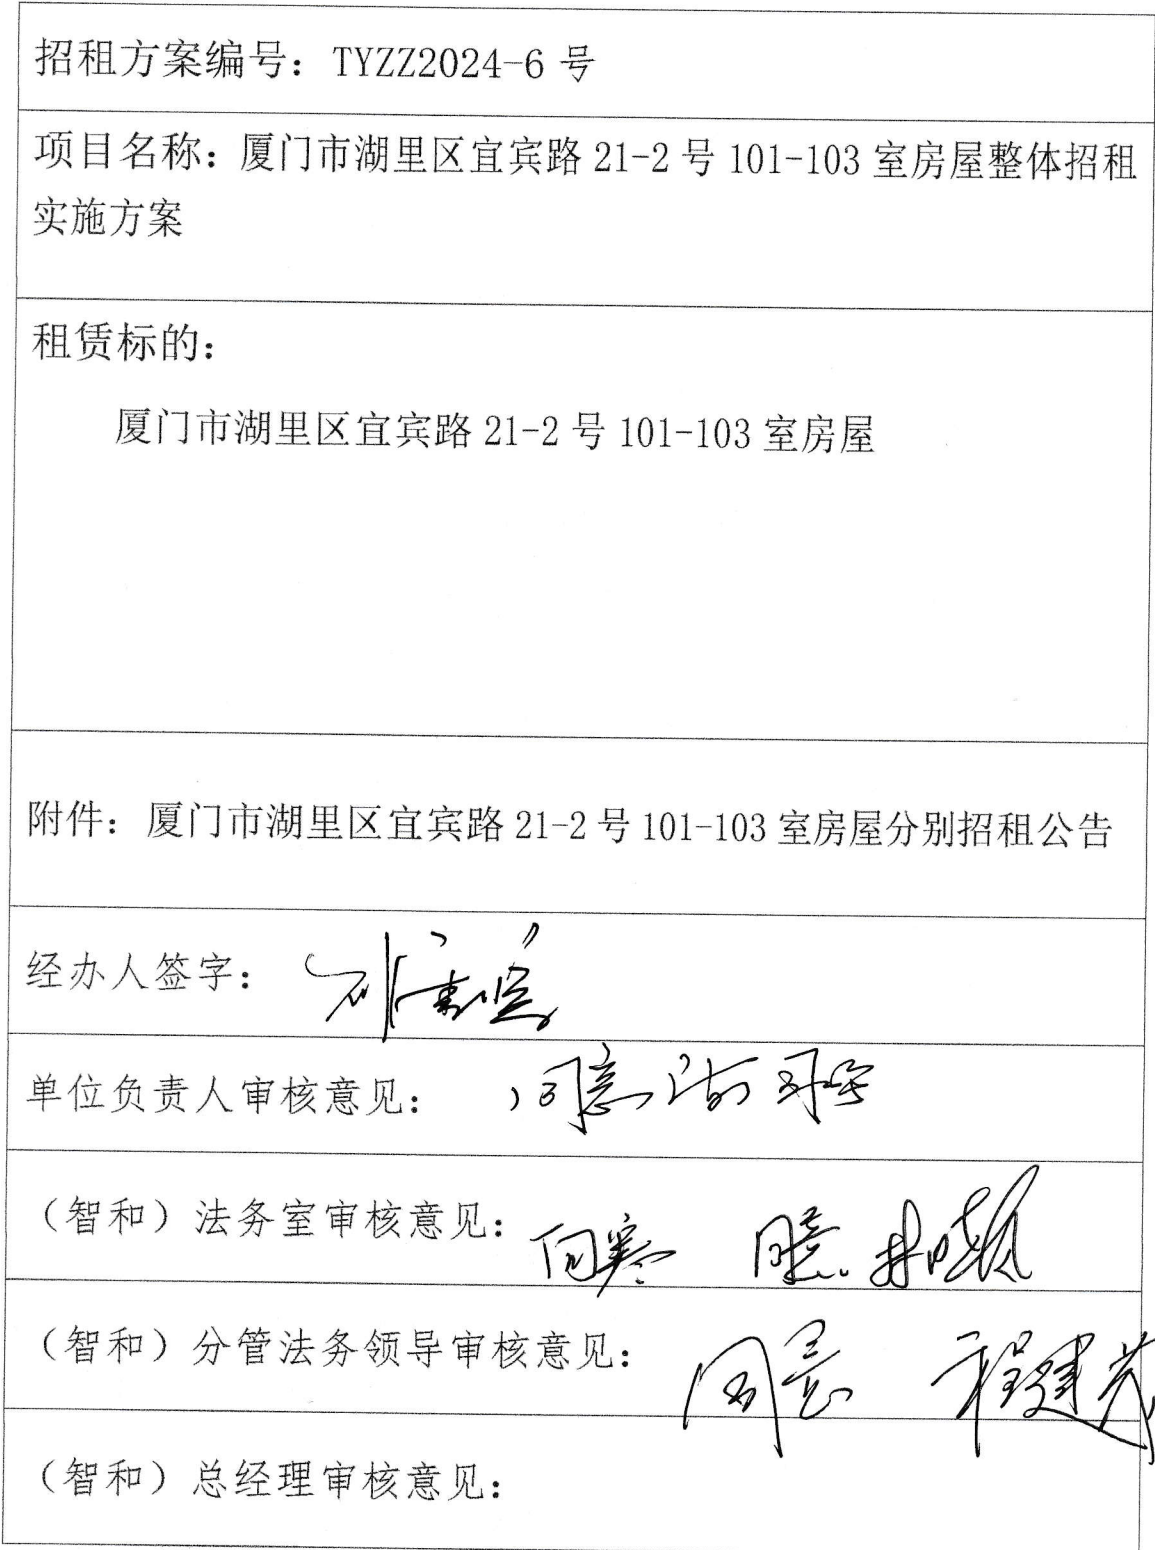 招租方案编号：TYZZ2024-6 号
项目名称：厦门市湖里区宜宾路 21-2 号 101-103 室房屋整体招租
实施方案
租赁标的：
厦门市湖里区宜宾路 21-2 号 101-103 室房屋
附件：厦门市湖里区宜宾路 21-2 号 101-103 室房屋分别招租公告
经办人签字：
单位负责人审核意见： 同意
（智和）法务室审核意见： 同意
（智和）分管法务领导审核意见： 同意 程建
（智和）总经理审核意见：